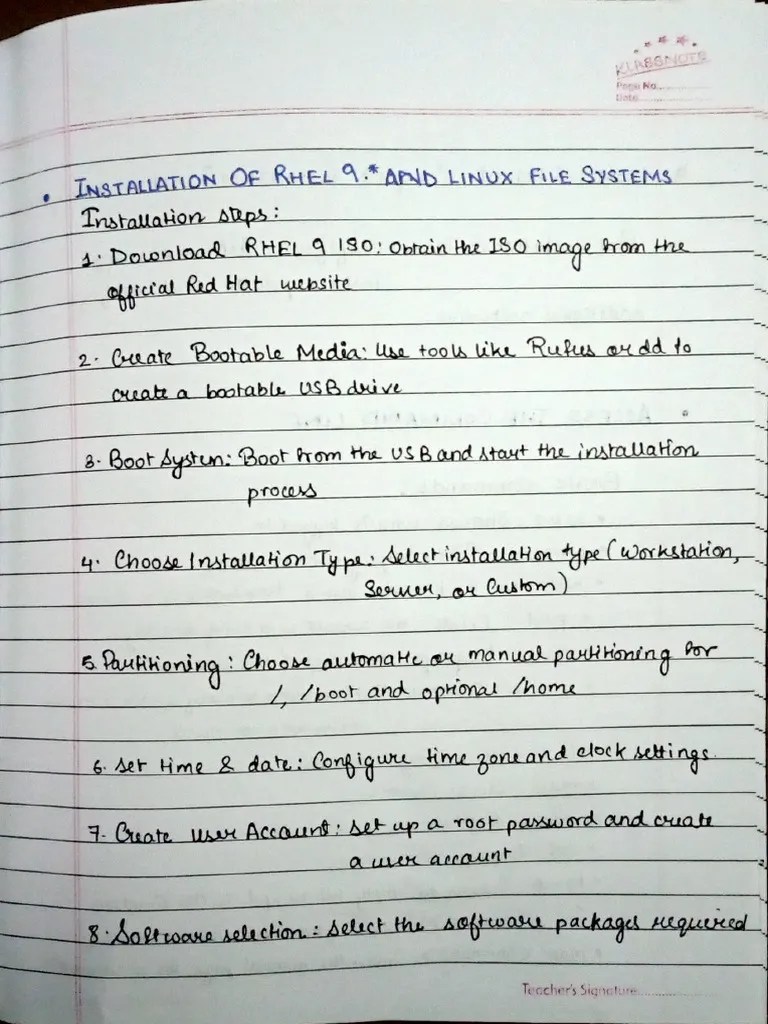 KLASSNOTE
Page No.
Date
• INSTALLATION OF RHEL 9.* AND LINUX FILE SYSTEMS
Installation steps:
1. Download RHEL 9 ISO: Obtain the ISO image from the
official Red Hat website
2. Create Bootable Media: Use tools like Rufus or dd to
create a bootable USB drive
3. Boot System: Boot from the USB and start the installation
process
4. Choose Installation Type: Select installation type (Workstation,
Server, or Custom)
5. Partitioning: Choose automatic or manual partitioning for
/, /boot and optional /home
6. Set time & date: Configure time zone and clock settings.
7. Create User Account: Set up a root password and create
a user account
8. Software selection: Select the software packages required
Teacher's Signature